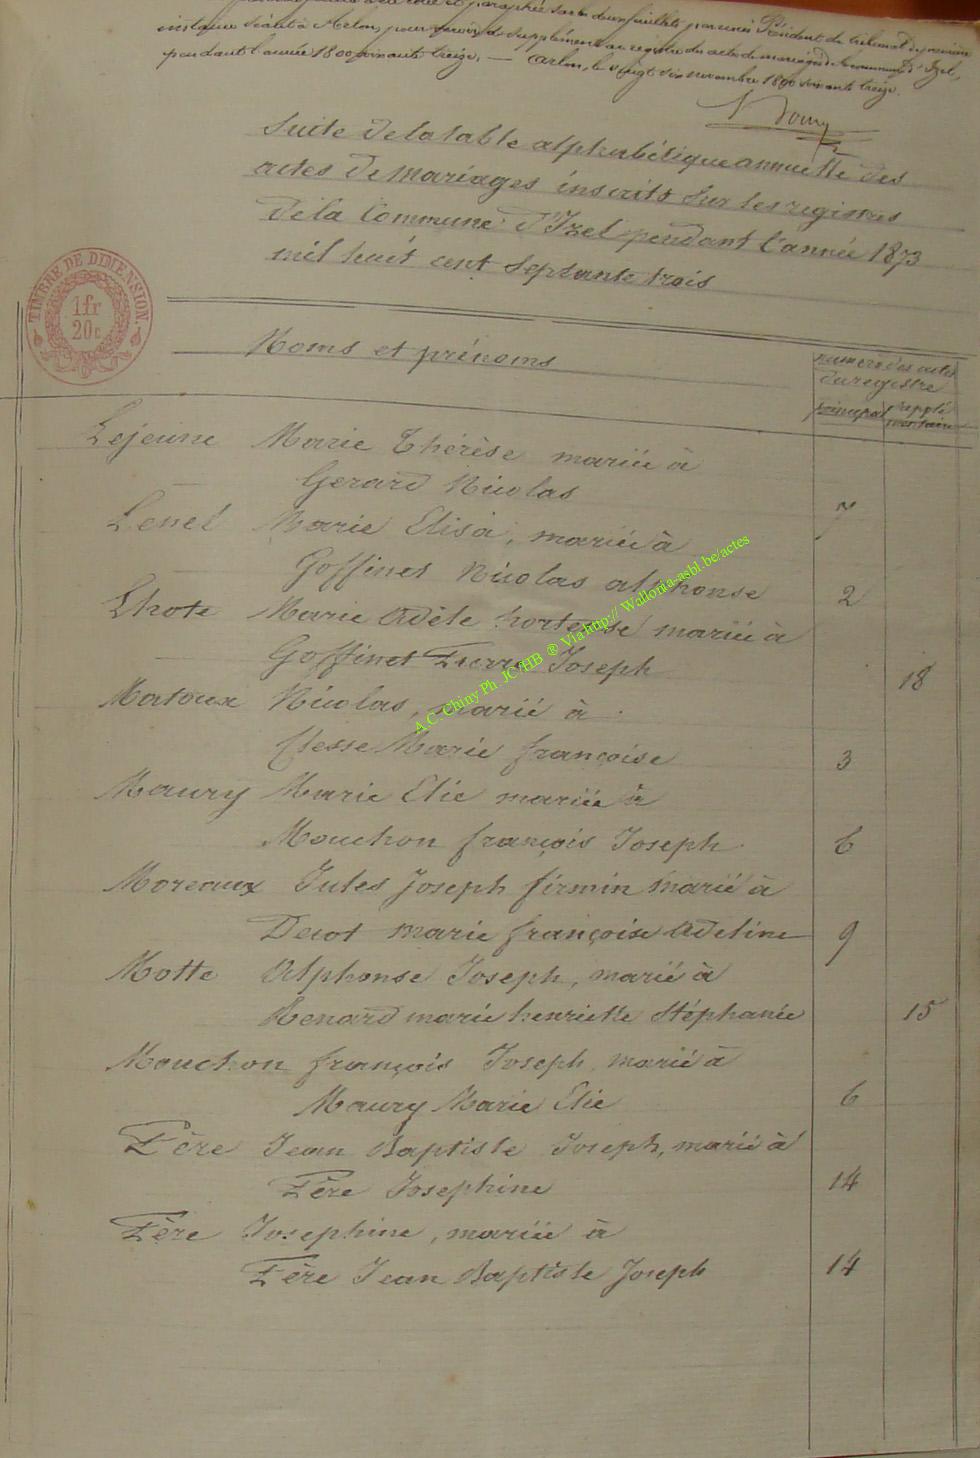 instance séant à Arlon, pour servir de supplément au registre des actes de mariages de la commune d'Izel,
pendant l'année 1800 soixante treize. — Arlon, le vingt six novembre 1800 soixante treize.
Suite de la table alphabétique annuelle des
actes de Mariages inscrits sur les registres
de la Commune d'Izel pendant l'année 1873
mil huit cent septante trois
TIMBRE DE DIMENSION.
1 fr
20 c
Noms et prénoms
numéro des actes
du registre
principal supplé
mentaire
Lejeune Marie Thérèse mariée à
Gerard Nicolas 7
Lenel Marie Elisa, mariée à
Goffinet Nicolas alphonse 2
Lhote Marie Adèle hortense mariée à
Goffinet Pierre Joseph 18
Matoux Nicolas, marié à
Clesse Marie françoise 3
Maury Marie Elie mariée à
Mouchon françois Joseph 6
Moreaux Jules Joseph firmin marié à
Decot marie françoise Adeline 9
Motte Alphonse Joseph, marié à
Renard marie henriette Stéphanie 15
Mouchon françois Joseph, marié à
Maury Marie Elie 6
Père Jean Baptiste Joseph, marié à
Père Josephine 14
Père Josephine, mariée à
Père Jean Baptiste Joseph 14
A.C. Chiny Ph. JC/HB ® Via http:// Wallonia-asbl.be/actes